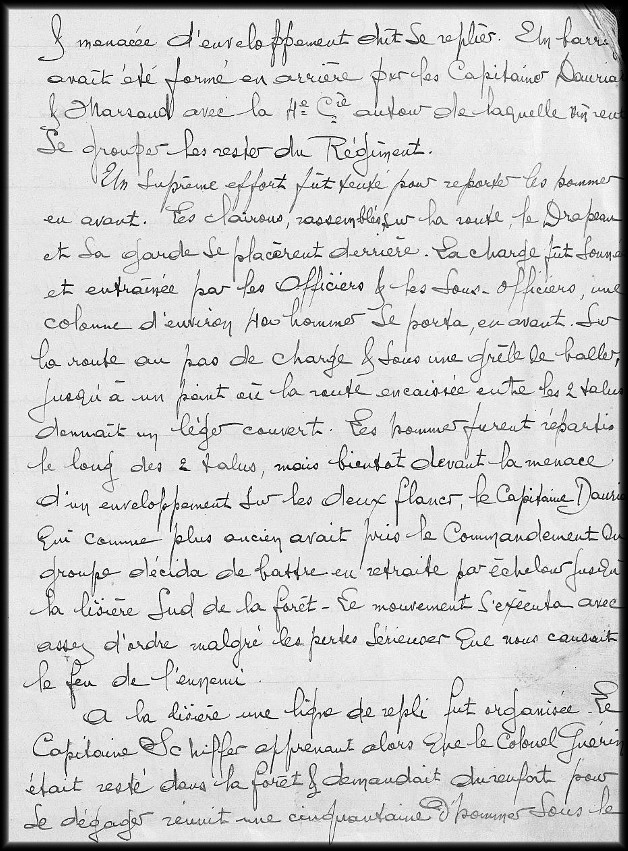 & menacée d'enveloppement dût se replier. Un barra
avait été formé en arrière par les Capitaines Dauria
& Marsaud avec la 4e Cie autour de laquelle vinrent
se grouper les restes du Régiment.
Un suprême effort fût tenté pour reporter les hommes
en avant. Les clairons, rassemblés sur la route, le Drapeau
et sa garde se placèrent derrière. La charge fût sonnée
et entraînée par les Officiers & les Sous-Officiers, une
colonne d'environ 400 hommes se porta, en avant. Sur
la route au pas de charge & sous une grêle de balles,
jusqu'à un point où la route encaissée entre les 2 talus
donnait un léger couvert. Les hommes furent répartis
le long des 2 talus, mais bientôt devant la menace
d'un enveloppement sur les deux flancs, le Capitaine Dauria
qui comme plus ancien avait pris le Commandement du
groupe décida de battre en retraite par échelons jusqu'à
la lisière Sud de la forêt - Le mouvement s'exécuta avec
assez d'ordre malgré les pertes sérieuses que nous causait
le feu de l'ennemi.
A la lisière une ligne de repli fut organisée. Le
Capitaine Schiffer apprenant alors que le Colonel Guérin
était resté dans la forêt & demandait du renfort pour
se dégager réunit une cinquantaine d'hommes sous le